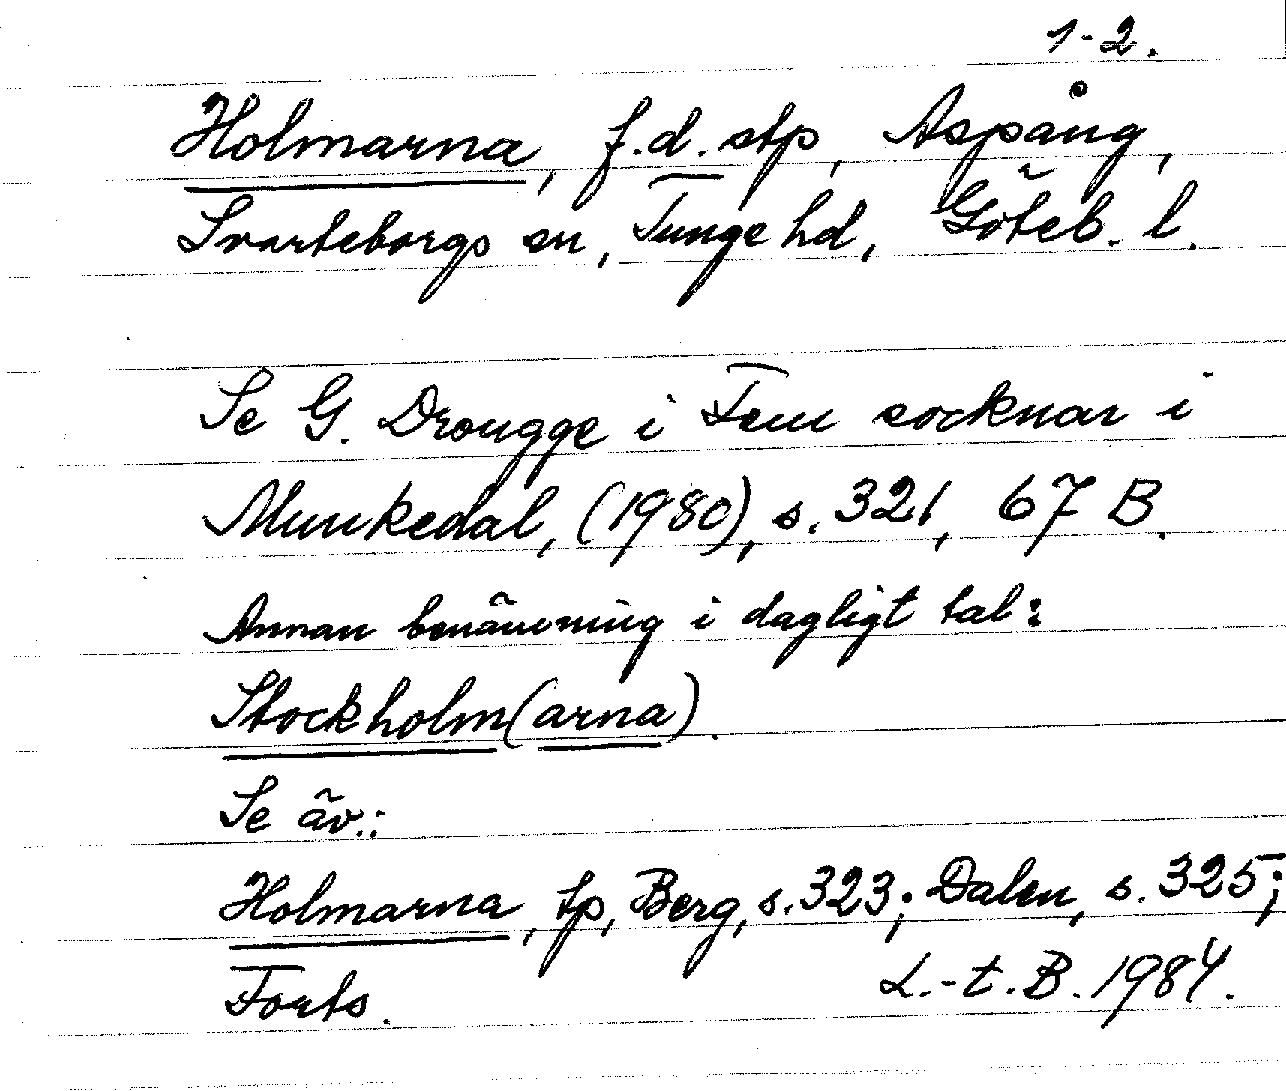 1-2.
Holmarna, f.d. stp, Aspång,
Svarteborgs sn, Tunge hd, Göteb. l.
Se G. Drougge i Fem socknar i
Munkedal, (1980), s. 321, 67 B.
Annan benämning i dagligt tal:
Stockholm(arna).
Se äv.:
Holmarna, tp, Berg, s. 323; Dalen, s. 325;
Forts. L.-t. B. 1984.